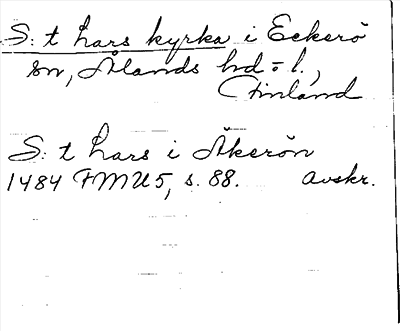 S:t Lars kyrka i Eckerö
sn, Ålands hd=l.,
(Finland
S:t Lars i Åkerön
1484 FMU 5, s. 88. Avskr.